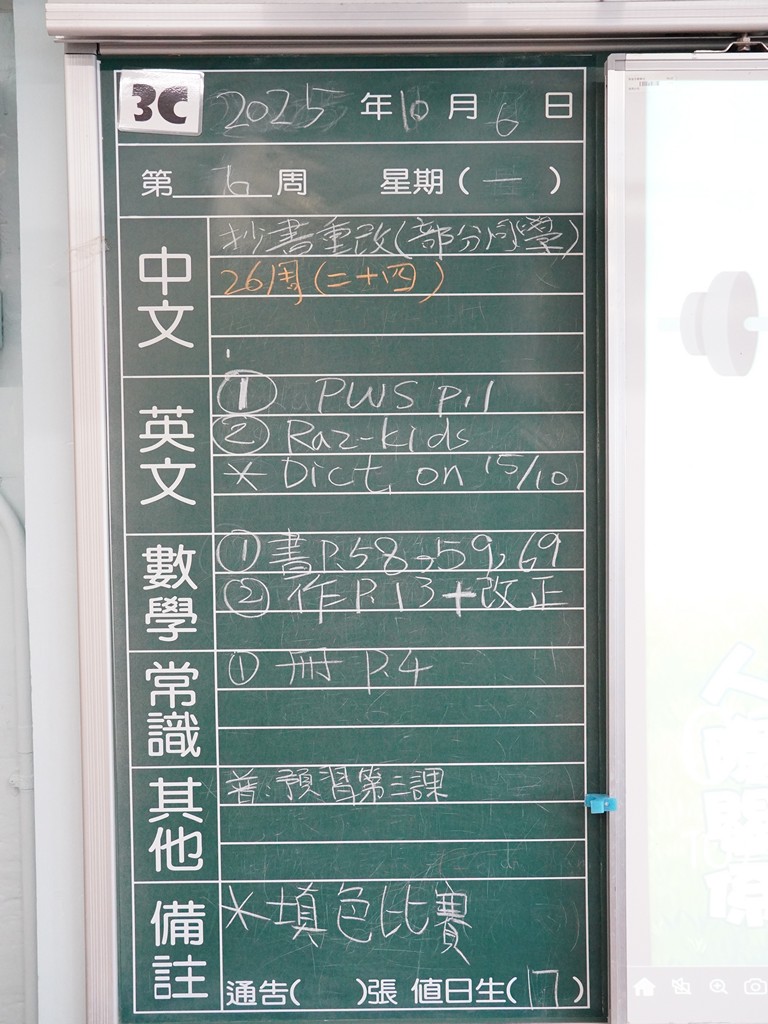 3C 2025年10月6日
第6周 星期(一)
中文
抄書重改(部分同學)
26周(二十四)
英文
① PWS p.1
② Raz-kids
* Dict. on 15/10
數學
① 書P.58,59,69
② 作P.13+改正
常識
① 冊 P.4
其他
普:預習第三課
備註
*填色比賽
通告( )張 值日生(17)
人際關係